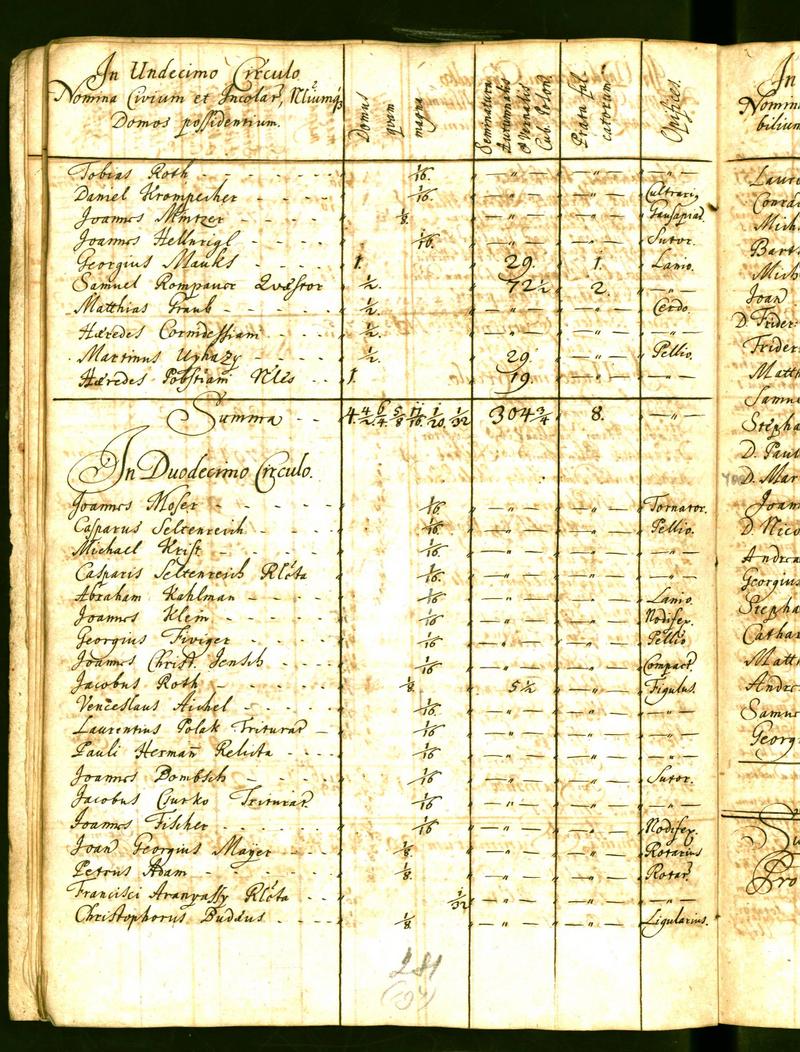 In Undecimo Circulo
Nomina Civium et Incolar, Nliumq3
Domos possidentium.
Domus quam magna
Seminatura Autumnalis et Vernalis Cub. Poson
Prata falcatorum
Opifices.
Tobias Roth - - - - 1/16. " — " — " — " — " — " —
Daniel Krompecher - - - - 1/16. — " — — " — Cultrari9
Joannes Mintzer - - - - 1/8. — " — — " — Gausapiad.
Joannes Hellnrigl - - - - 1/16. — " — — " — Sutor.
Georgius Mauks - - - - 1. 29. 1. Lanio.
Samuel Rompauer Quæstor 1/2. 72 1/2 2. — " —
Matthias Traub - - - - 1/2. — " — — " — Cerdo.
Hæredes - - 1/2. — " — — " — — " —
Martinus Uyhazy - - - - 1/2. 29. — " — Pellio.
Hæredes Nlės - - 1. 19. — " — — " —
Summa - - 4. 4/2. 6/4. 5/8. 11/16. 1/20. 1/32 304 3/4 8. — " —
In Duodecimo Circulo.
Joannes Moser - - - - 1/16. — " — — " — Tornator.
Casparus Seltenreich - - - 1/16. — " — — " — Pellio.
Michael Krist - - - - 1/16 — " — — " — — " —
Casparis Seltenreich Rlcta 1/16. — " — — " — — " —
Abraham Kahlman - - - 1/16 — " — — " — Lanio.
Joannes Klein - - - - 1/16 — " — — " — Nodifex.
Georgius Fiviger - - - - 1/16 — " — — " — Pellio
Joannes Christ. Jensch - - - 1/16 — " — — " — Compact.
Jacobus Roth - - - - 1/8. 5 1/2 — " — Figulus.
Venceslaus Aichel - - - - 1/16. — " — — " — — " —
Laurentius Polak Triturad — 1/16 — " — — " — — " —
Pauli Herman Relicta - - - 1/16 — " — — " — — " —
Joannes Dombsch - - - - 1/16 — " — — " — Sutor.
Jacobus Csurko Triturad. 1/16 — " — — " — — " —
Joannes Fischer - - - - 1/16 — " — — " — Nodifex.
Joan Georgius Mayer - - - 1/8. — " — — " — Rotarius
Petrus Adam - - - - 1/8. — " — — " — Rotar.
Francisci Aranyassy Rlcta - - - 1/32 — " — — " — — " —
Christophorus Buddæus - - - 1/8. — " — — " — Ligularius.
281
In
Nomin
bilium
Laure
Conrad
Mich
Bart
Mich
Joan
D. Frider
Frideri
Matth
Samue
Stepha
D. Paul
D. Mar
Joann
D. Nico
Andrea
Georgius
Stepha
Cathar
Matt
Andre
Samue
Georg
Su
Pro